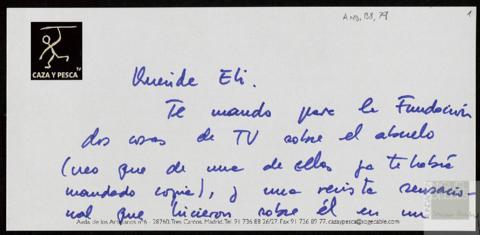 ANG. 138, 79
1
TV
CAZA Y PESCA
Querida Eli.
Te mando para la Fundación
dos cosas de TV sobre el abuelo
(creo que de una de ellas ya te había
mandado copia), y una revista sensacio-
nal que hicieron sobre él en un
Avda de los Artesanos nº6 - 28760 Tres Cantos. Madrid. Tel. 91 736 88 26/27. Fax 91 736 89 77. cazaypesca@sogecable.com